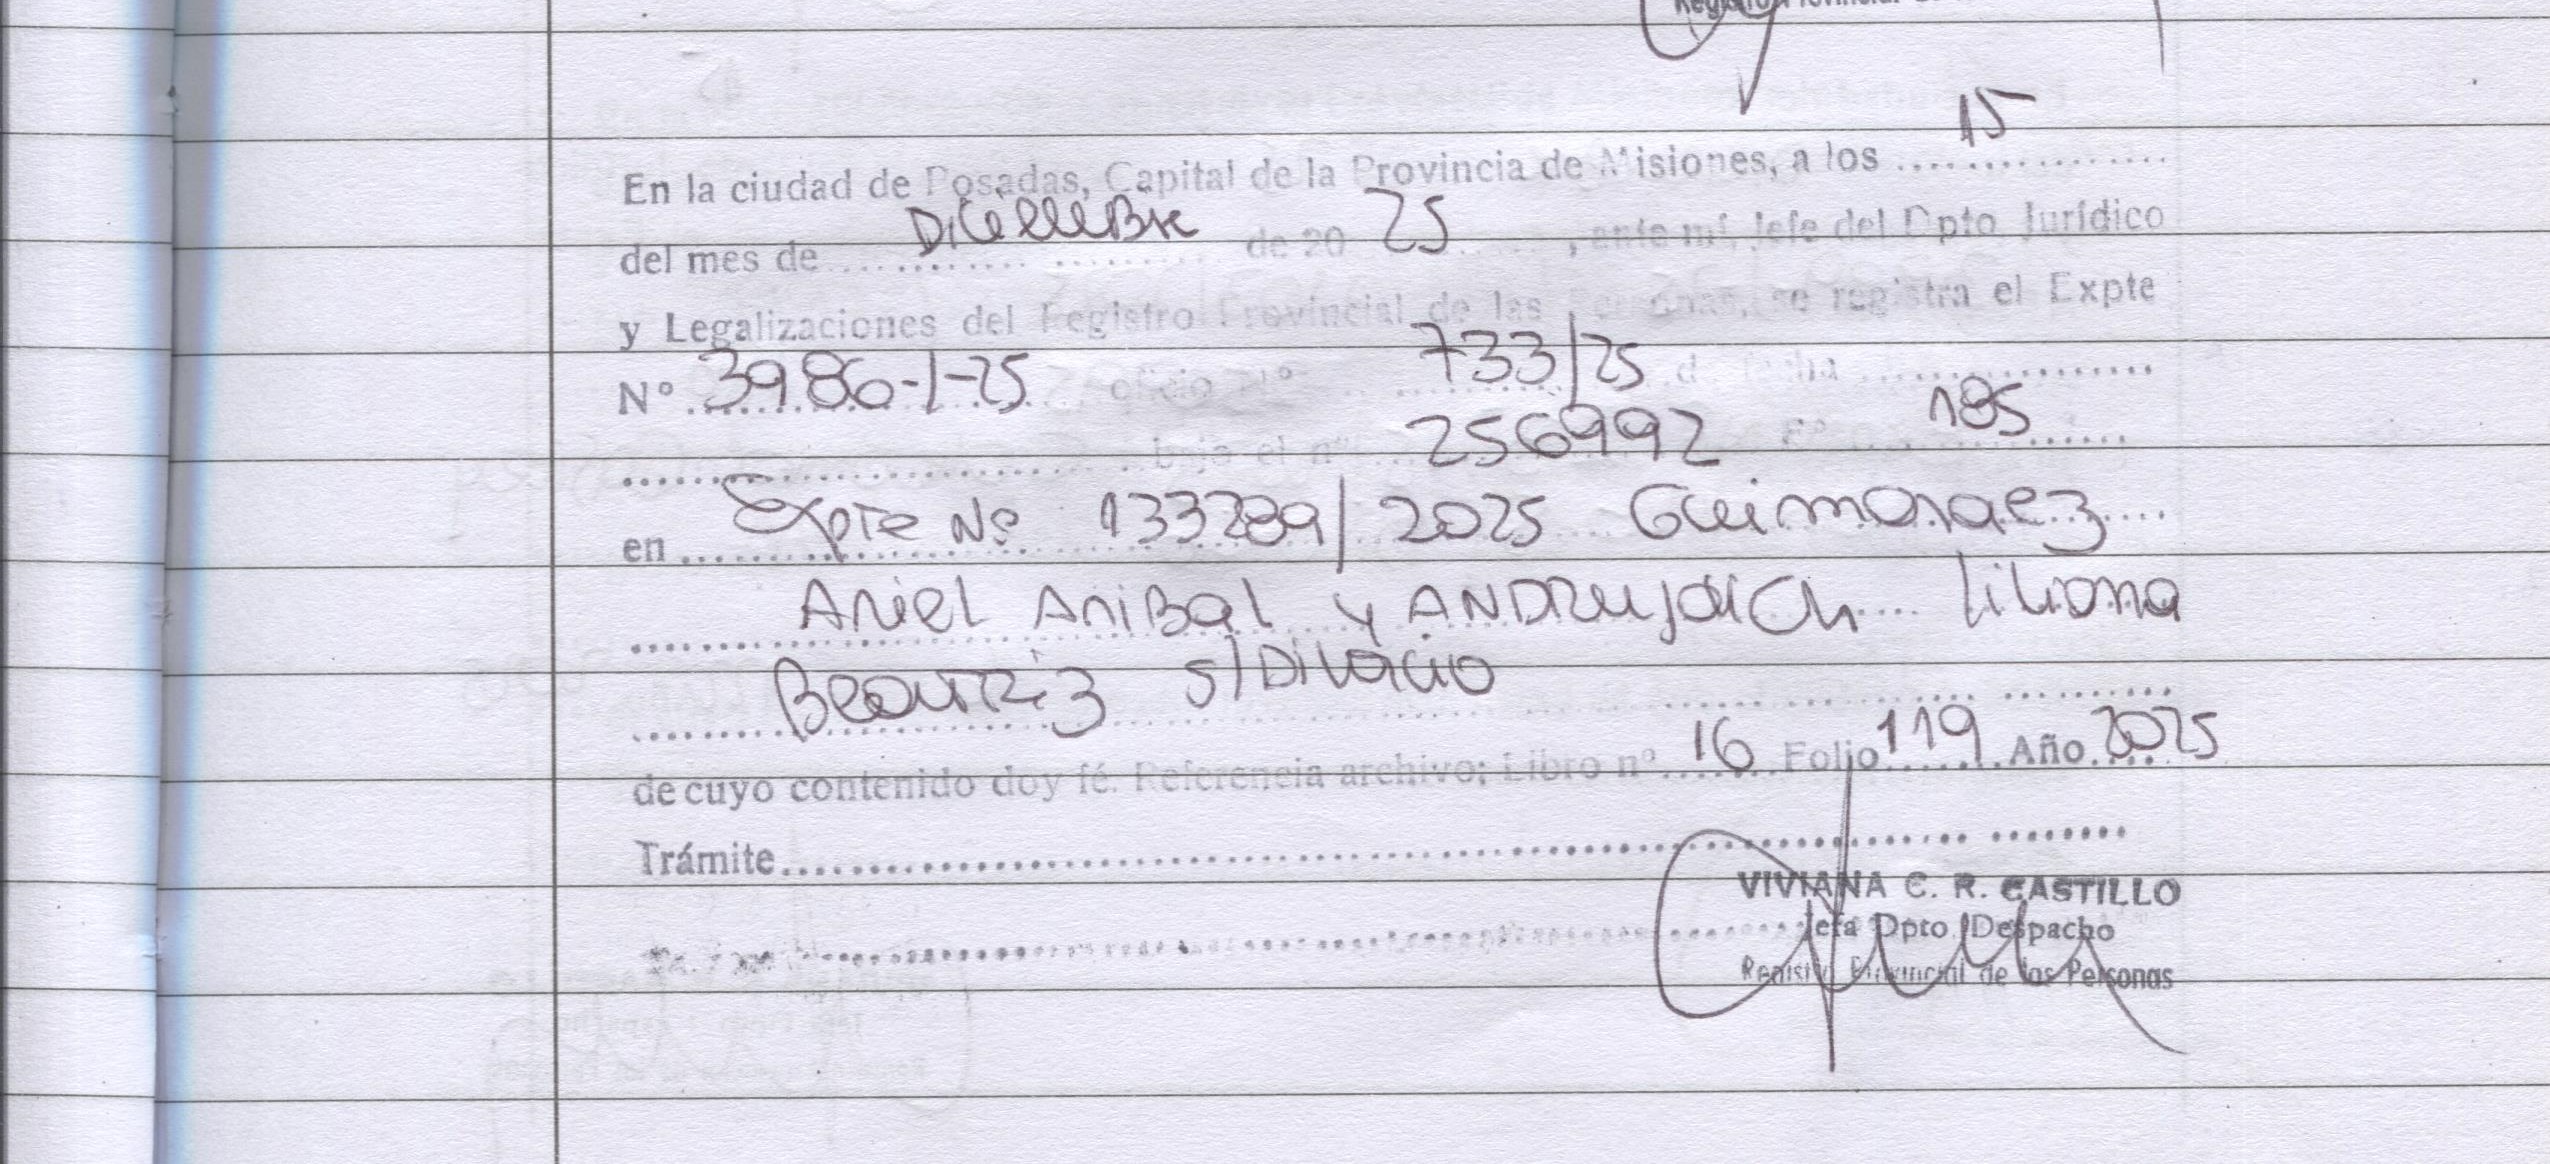 En la ciudad de Posadas, Capital de la Provincia de Misiones, a los 15
del mes de Diciembre de 20 25, ante mí, Jefe del Dpto Jurídico
y Legalizaciones del Registro Provincial de las Personas, se registra el Expte
Nº 3986-1-25 oficio Nº 733/25 de fecha
bajo el nº 256992 Fº 185
en Expte Nº 133289/2025 Guimaraez
Ariel Anibal y ANDRUJOVICH Liliana
Beatriz s/Divorcio
de cuyo contenido doy fé. Referencia archivo; Libro nº 16 Folio 119 Año 2025
Trámite
VIVIANA C. R. CASTILLO
Jefa Dpto Despacho
Registro Provincial de las Personas